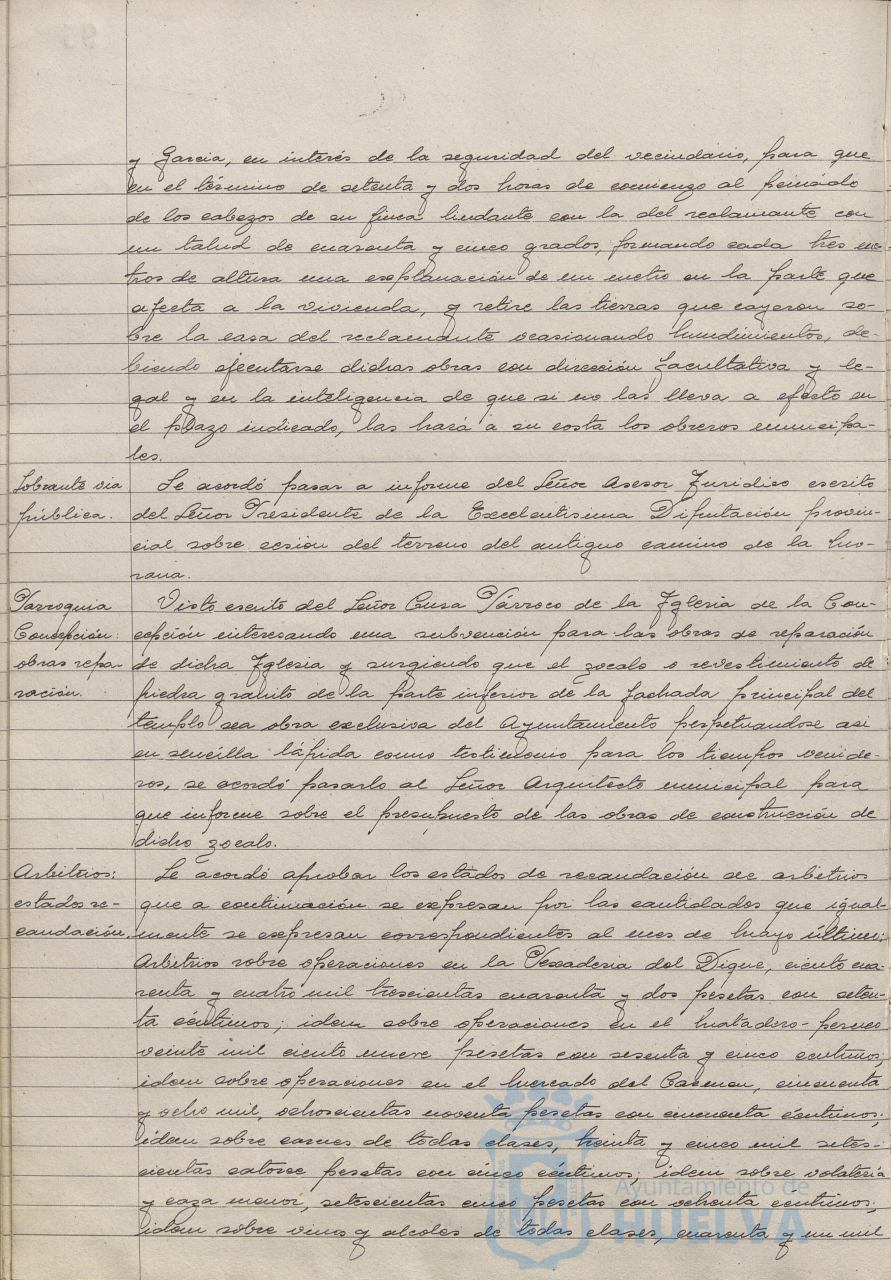 y Garcia, en interés de la seguridad del vecindario, para que
en el término de setenta y dos horas de comienzo al peinado
de los cabezos de su finca lindante con la del reclamante con
un talud de cuarenta y cinco grados, formando cada tres me-
tros de altura una explanación de un metro en la parte que
afecta a la vivienda, y retire las tierras que cayeron so-
bre la casa del reclamante ocasionando hundimientos, de-
biendo ejecutarse dichas obras con dirección facultativa y le-
gal y en la inteligencia de que si no las lleva a efecto en
el plazo indicado, las hará a su costa los obreros municipa-
les.
Sobrante via
pública.
Se acordó pasar a informe del Señor Asesor Juridico escrito
del Señor Presidente de la Excelentisima Diputación provin-
cial sobre cesion del terreno del antiguo camino de la
Parroquia
Concepción:
obras repa-
ración.
Visto escrito del Señor Cura Párroco de la Iglesia de la Con-
cepción interesando una subvención para las obras de reparación
de dicha Iglesia y surgiendo que el zocalo o revestimiento de
piedra granito de la parte inferior de la fachada principal del
templo sea obra exclusiva del Ayuntamiento perpetuandose asi
en sencilla lápida como testimonio para los tiempos venide-
ros, se acordó pasarlo al Señor Arquitecto municipal para
que informe sobre el presupuesto de las obras de construcción de
dicho zocalo.
Arbitrios:
estados re-
caudación.
Se acordó aprobar los estados de recaudación de arbitrios
que a continuación se expresan por las cantidades que igual-
mente se expresan correspondientes al mes de Mayo último:
Arbitrios sobre operaciones en la Pescaderia del Dique, ciento cua-
renta y cuatro mil trescientas cuarenta y dos pesetas con seten-
ta céntimos; idem sobre operaciones en el Matadero-
veinte mil ciento nueve pesetas con sesenta y cinco centimos;
idem sobre operaciones en el Mercado del Carmen, cincuenta
y ocho mil, ochocientas noventa pesetas con cincuenta céntimos;
idem sobre carnes de todas clases, treinta y cinco mil setes-
cientas catorce pesetas con cinco céntimos; idem sobre volateria
y caza menor, setescientas cinco pesetas con ochenta céntimos;
idem sobre vinos y alcoles de todas clases, cuarenta y un mil
Ayuntamiento de
HUELVA